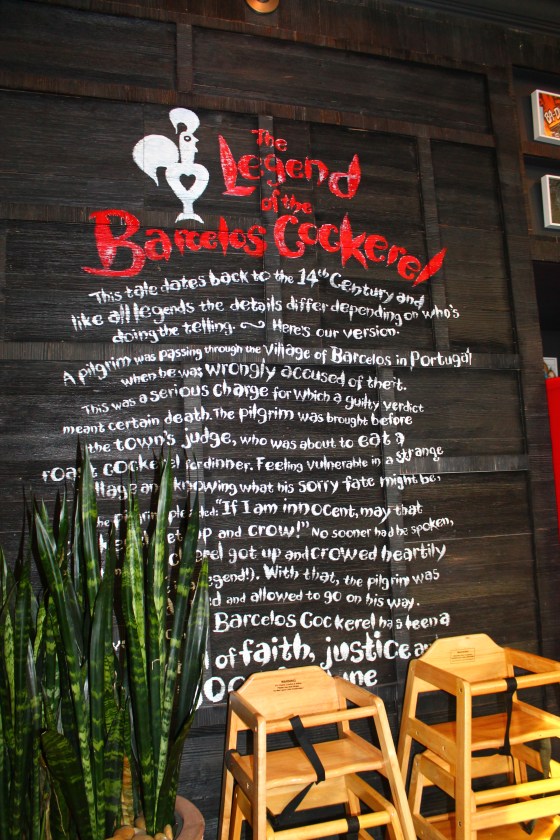 The
Legend
of the
Barcelos Cockerel
This tale dates back to the 14th Century and
like all legends the details differ depending on who's
doing the telling. ~ Here's our version.
A pilgrim was passing through the Village of Barcelos in Portugal
when he was wrongly accused of theft.
This was a serious charge for which a guilty verdict
meant certain death. The pilgrim was brought before
the town's judge, who was about to eat a
roast cockerel for dinner. Feeling vulnerable in a strange
and knowing what his sorry fate might be,
he "If I am innocent, may that
get up and crow!" No sooner had he spoken,
got up and crowed heartily
legend!). With that, the pilgrim was
and allowed to go on his way.
Barcelos Cockerel has been a
of faith, justice